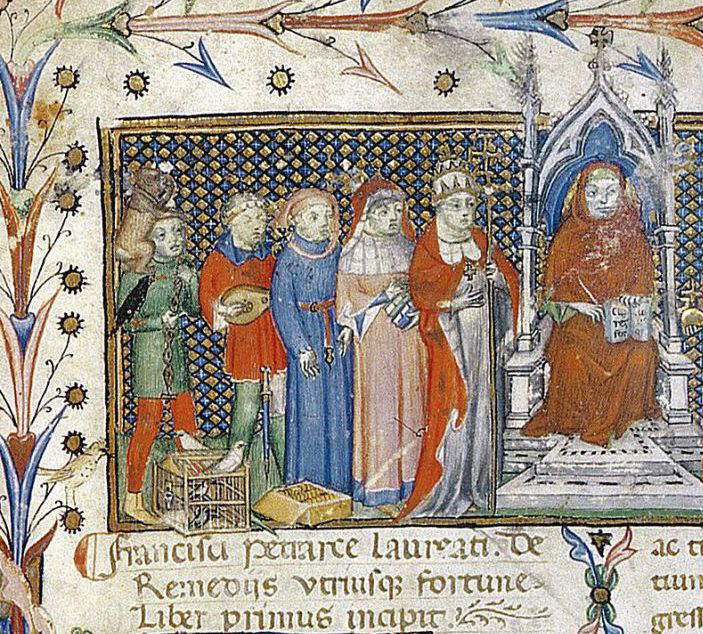 Francisci petrarce laureati. De
Remedijs vtriusqꝫ fortune.
Liber primus incipit.
ac